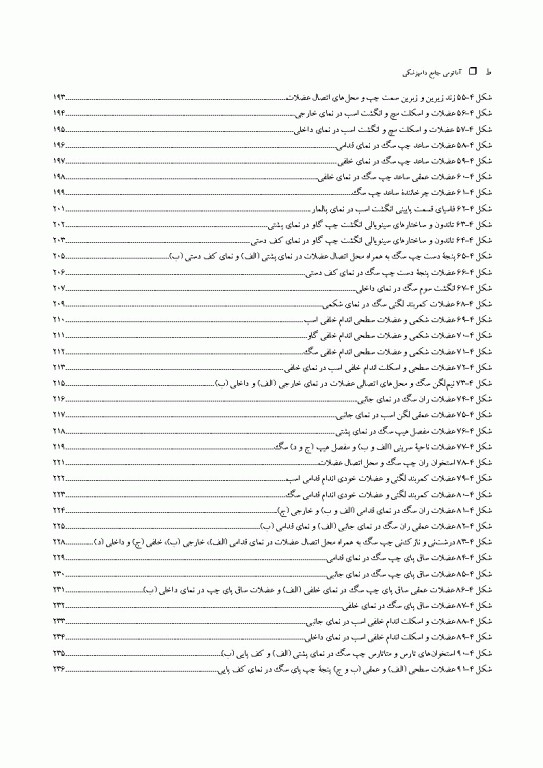 ط ❒ آناتومی جامع دامپزشکی
شکل ۴-۵۵ زند زیرین و زبرین سمت چپ و محل‌های اتصال عضلات ۱۹۳
شکل ۴-۵۶ عضلات و اسکلت مچ و انگشت اسب در نمای خارجی ۱۹۴
شکل ۴-۵۷ عضلات و اسکلت مچ و انگشت اسب در نمای داخلی ۱۹۵
شکل ۴-۵۸ عضلات ساعد چپ سگ در نمای قدامی ۱۹۶
شکل ۴-۵۹ عضلات ساعد چپ سگ در نمای خلفی ۱۹۷
شکل ۴-۶۰ عضلات عمقی ساعد چپ سگ در نمای خلفی ۱۹۸
شکل ۴-۶۱ عضلات چرخانندهٔ ساعد چپ سگ ۱۹۹
شکل ۴-۶۲ فاسیای قسمت پایینی انگشت اسب در نمای پالمار ۲۰۱
شکل ۴-۶۳ تاندون و ساختارهای سینویالی انگشت چپ گاو در نمای پشتی ۲۰۲
شکل ۴-۶۴ تاندون و ساختارهای سینویالی انگشت چپ گاو در نمای کف دستی ۲۰۳
شکل ۴-۶۵ پنجهٔ دست چپ سگ به همراه محل اتصال عضلات در نمای پشتی (الف) و نمای کف دستی (ب) ۲۰۵
شکل ۴-۶۶ عضلات پنجهٔ دست چپ سگ در نمای کف دستی ۲۰۶
شکل ۴-۶۷ انگشت سوم سگ در نمای داخلی ۲۰۷
شکل ۴-۶۸ عضلات کمربند لگنی سگ در نمای شکمی ۲۰۹
شکل ۴-۶۹ عضلات شکمی و عضلات سطحی اندام خلفی اسب ۲۱۰
شکل ۴-۷۰ عضلات شکمی و عضلات سطحی اندام خلفی گاو ۲۱۱
شکل ۴-۷۱ عضلات شکمی و عضلات سطحی اندام خلفی سگ ۲۱۲
شکل ۴-۷۲ عضلات سطحی و اسکلت اندام خلفی اسب در نمای خلفی ۲۱۳
شکل ۴-۷۳ نیم‌لگن سگ و محل‌های اتصالی عضلات در نمای خارجی (الف) و داخلی (ب) ۲۱۵
شکل ۴-۷۴ عضلات ران سگ در نمای جانبی ۲۱۶
شکل ۴-۷۵ عضلات عمقی لگن اسب در نمای جانبی ۲۱۷
شکل ۴-۷۶ عضلات مفصل هیپ سگ در نمای پشتی ۲۱۸
شکل ۴-۷۷ عضلات ناحیهٔ سرینی (الف و ب) و مفصل هیپ (ج و د) سگ ۲۱۹
شکل ۴-۷۸ استخوان ران چپ سگ و محل اتصال عضلات ۲۲۱
شکل ۴-۷۹ عضلات کمربند لگنی و عضلات خودی اندام قدامی اسب ۲۲۲
شکل ۴-۸۰ عضلات کمربند لگنی و عضلات خودی اندام قدامی سگ ۲۲۳
شکل ۴-۸۱ عضلات ران سگ در نمای قدامی (الف و ب) و خارجی (ج) ۲۲۴
شکل ۴-۸۲ عضلات عمقی ران سگ در نمای جانبی (الف) و نمای قدامی (ب) ۲۲۵
شکل ۴-۸۳ درشت‌نی و نازک‌نی چپ سگ به همراه محل اتصال عضلات در نمای قدامی (الف)، خارجی (ب)، خلفی (ج) و داخلی (د) ۲۲۸
شکل ۴-۸۴ عضلات ساق پای سگ در نمای قدامی ۲۲۹
شکل ۴-۸۵ عضلات ساق پای چپ سگ در نمای جانبی ۲۳۰
شکل ۴-۸۶ عضلات عمقی ساق پای چپ سگ در نمای خلفی (الف) و عضلات ساق پای چپ در نمای داخلی (ب) ۲۳۱
شکل ۴-۸۷ عضلات ساق پای سگ در نمای خلفی ۲۳۲
شکل ۴-۸۸ عضلات و اسکلت اندام خلفی اسب در نمای جانبی ۲۳۳
شکل ۴-۸۹ عضلات و اسکلت اندام خلفی اسب در نمای داخلی ۲۳۴
شکل ۴-۹۰ استخوان‌های تارس و متاتارس چپ سگ در نمای پشتی (الف) و کف پایی (ب) ۲۳۵
شکل ۴-۹۱ عضلات سطحی (الف) و عمقی (ب و ج) پنجهٔ چپ پای سگ در نمای کف پایی ۲۳۶